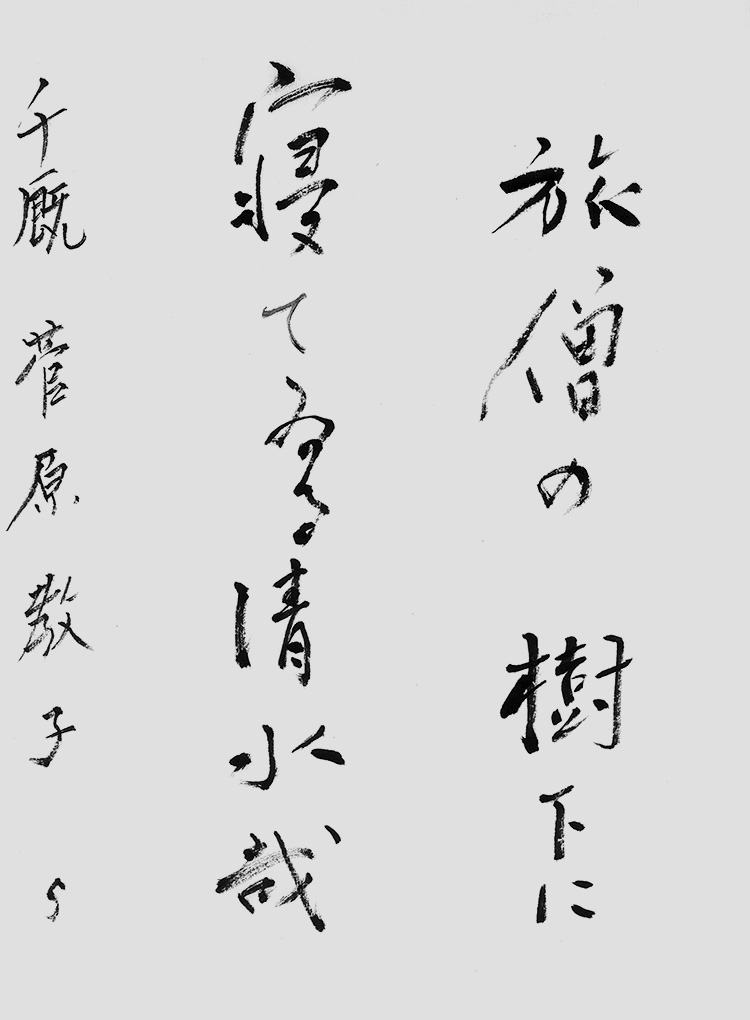 旅僧の樹下に
寝てゐる清水哉
千厩 菅原教子